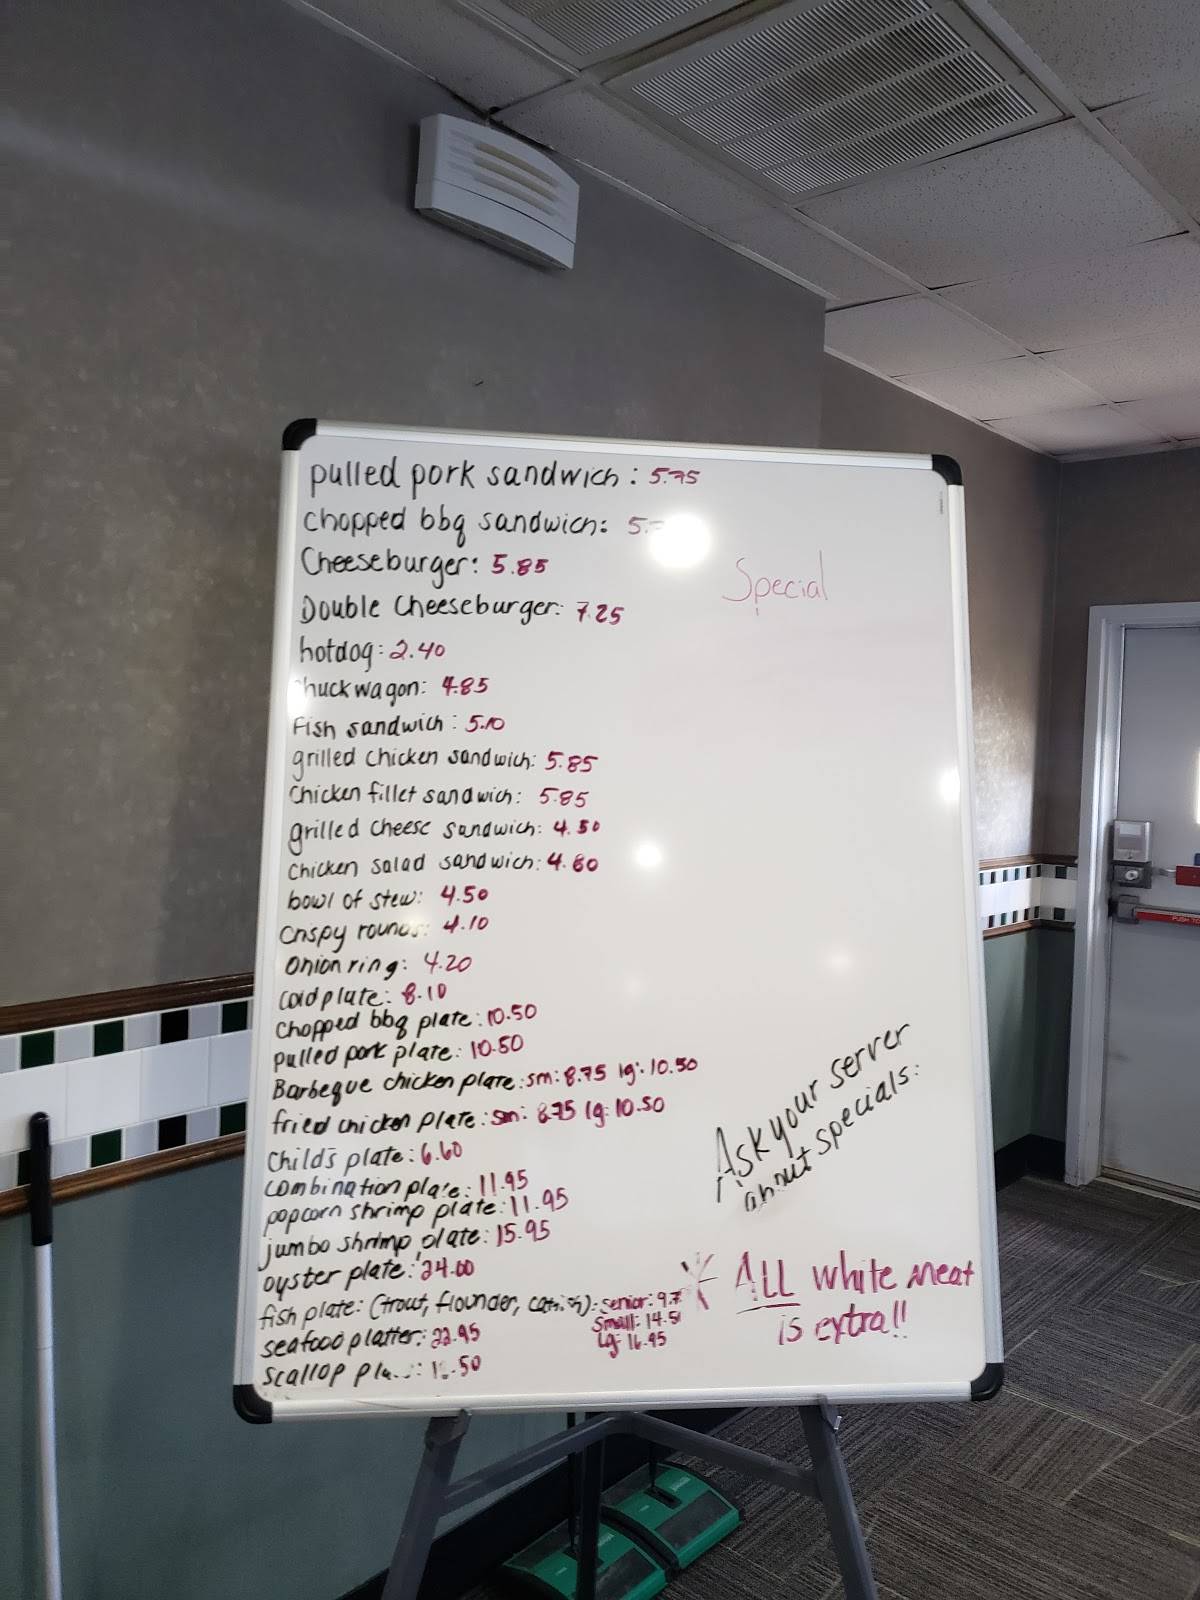 pulled pork sandwich: 5.75
Chopped bbq sandwich: 5.
Cheeseburger: 5.85
Special
Double Cheeseburger: 7.25
hotdog: 2.40
huckwagon: 4.85
Fish sandwich: 5.10
grilled chicken sandwich: 5.85
Chicken fillet sandwich: 5.85
grilled cheese sandwich: 4.50
Chicken salad sandwich: 4.60
bowl of stew: 4.50
Crispy rounds: 4.10
Onion ring: 4.20
Cold plate: 8.10
Chopped bbq plate: 10.50
pulled pork plate: 10.50
Barbeque chicken plate: sm: 8.75 lg: 10.50
fried chicken plate: sm: 8.75 lg: 10.50
Child's plate: 6.60
combination plate: 11.95
popcorn shrimp plate: 11.95
jumbo shrimp plate: 15.95
oyster plate: 24.00
fish plate: (trout, flounder, catfish): senior: 9.7
small: 14.5
lg: 16.95
seafood platter: 22.95
Scallop
Ask your server
about specials:
* ALL white meat
is extra!!
PUSH TO